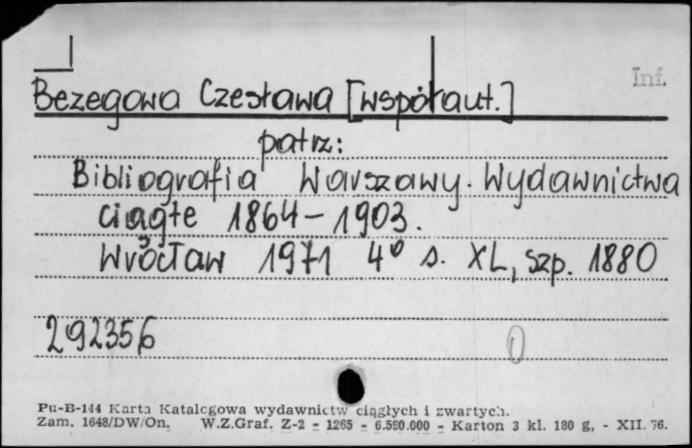 Inf.
Bezegowa Czesława [współaut.]
patrz:
Bibliografia Warszawy. Wydawnictwa
ciągłe 1864-1903.
Wrocław 1971 4° s. XL, szp. 1880
292356
Pu-B-144 Karta Katalogowa wydawnictw ciągłych i zwartych.
Zam. 1648/DW/On. W.Z.Graf. Z-2 - 1265 - 6.590.000 - Karton 3 kl. 180 g, - XII. 76.